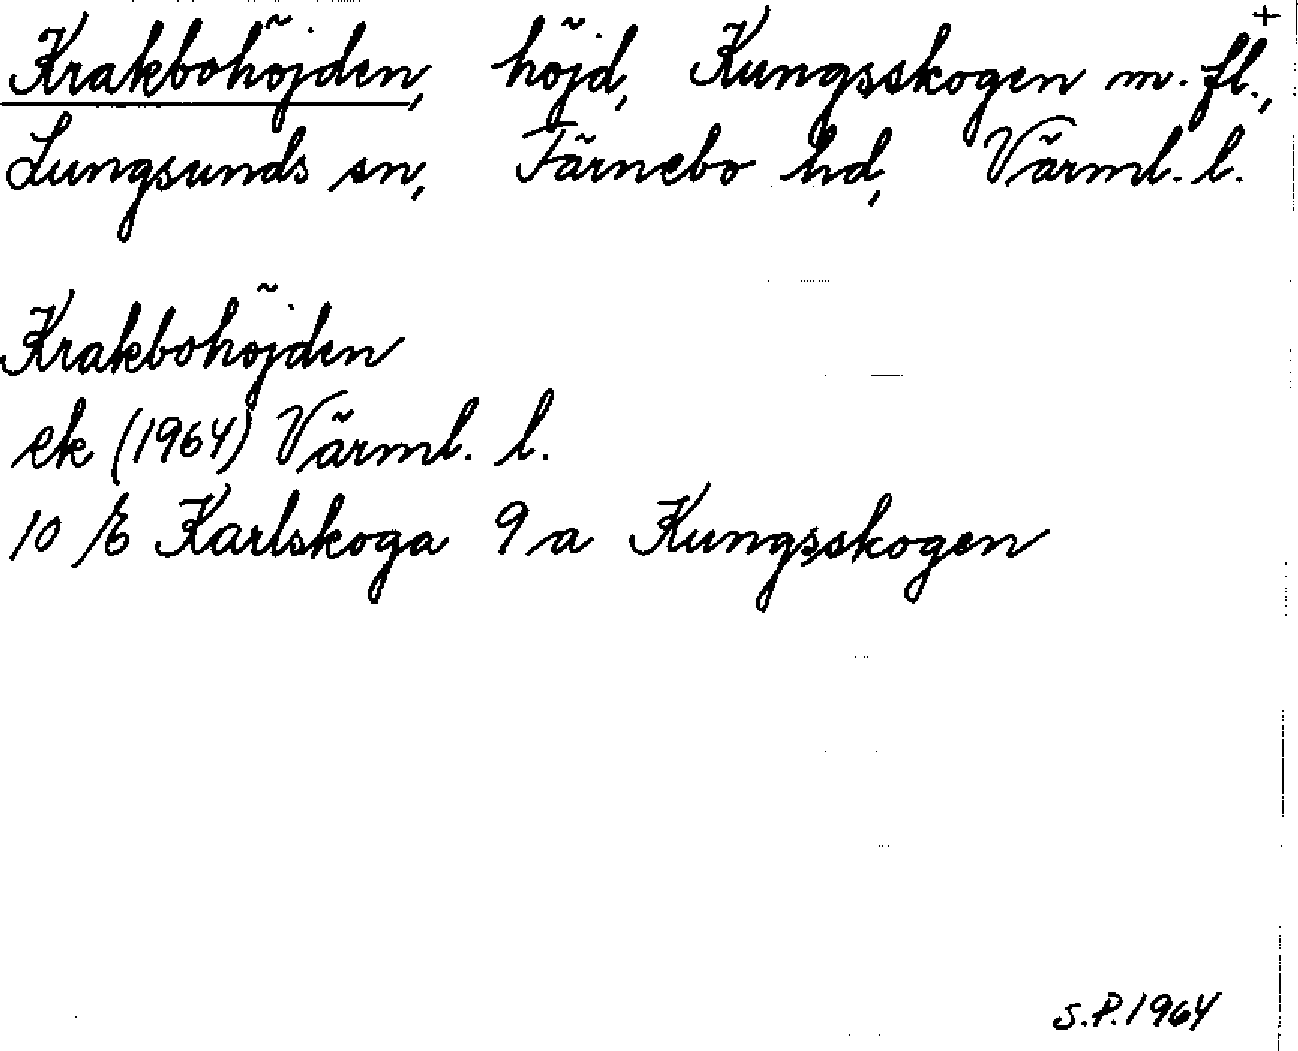 Krakbohöjden, höjd, Kungsskogen m. fl., +
Lungsunds sn, Färnebo hd, Värml. l.
Krakbohöjden
ek (1964) Värml. l.
10 E Karlskoga 9 a Kungsskogen
S.P. 1964